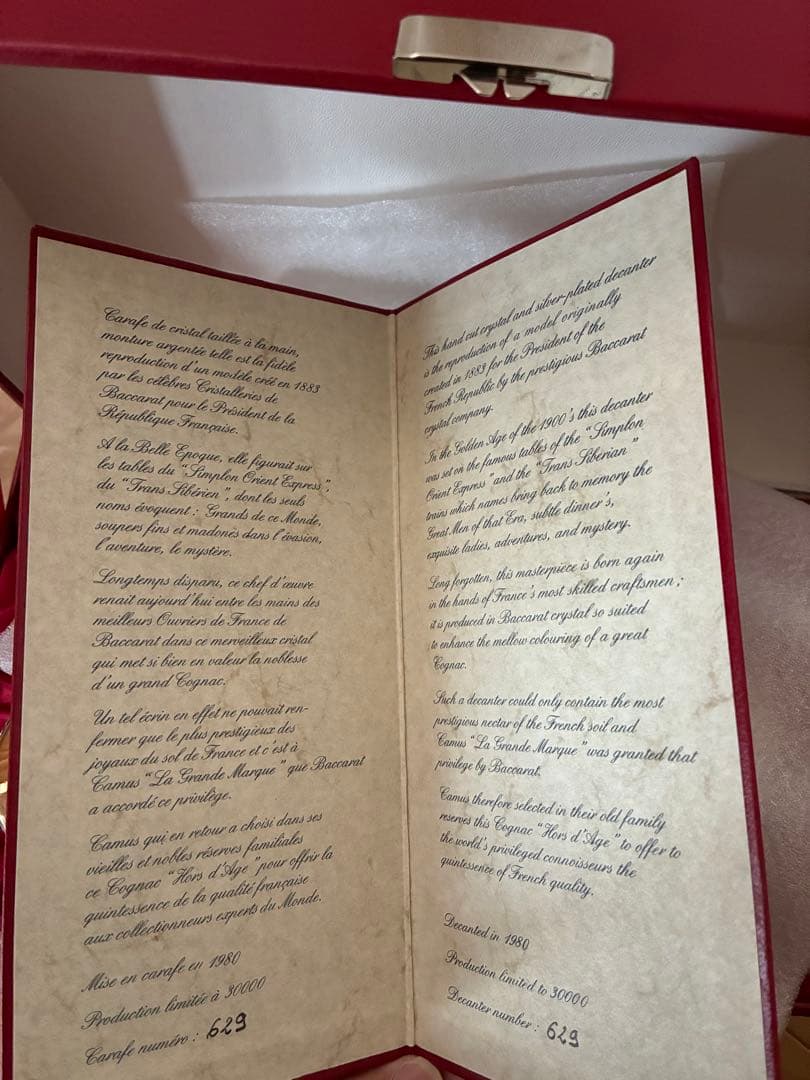 Carafe de cristal taillée à la main,
monture argentée telle est la fidèle
reproduction d'un modèle créé en 1883
par les célèbres Cristalleries de
Baccarat pour le Président de la
République Française.
A la Belle Epoque, elle figurait sur
les tables du "Simplon Orient Express",
du "Trans Sibérien", dont les seuls
noms évoquent : Grands de ce Monde,
soupers fins et madones dans l'évasion,
l'aventure, le mystère.
Longtemps disparu, ce chef d'œuvre
renait aujourd'hui entre les mains des
meilleurs Ouvriers de France de
Baccarat dans ce merveilleux cristal
qui met si bien en valeur la noblesse
d'un grand Cognac.
Un tel écrin en effet ne pouvait ren-
fermer que le plus prestigieux des
joyaux du sol de France et c'est à
Camus "La Grande Marque" que Baccarat
a accordé ce privilège.
Camus qui en retour a choisi dans ses
vieilles et nobles réserves familiales
ce Cognac "Hors d'Age" pour offrir la
quintessence de la qualité française
aux collectionneurs experts du Monde.
Mise en carafe en 1980
Production limitée à 30000
Carafe numéro : 629
This hand cut crystal and silver-plated decanter
is the reproduction of a model originally
created in 1883 for the President of the
French Republic by the prestigious Baccarat
crystal company.
In the Golden Age of the 1900's this decanter
was set on the famous tables of the "Simplon
Orient Express" and the "Trans Siberian"
trains which names bring back to memory the
Great Men of that Era, subtle dinner's,
exquisite ladies, adventures, and mystery.
Long forgotten, this masterpiece is born again
in the hands of France's most skilled craftsmen ;
it is produced in Baccarat crystal so suited
to enhance the mellow colouring of a great
Cognac.
Such a decanter could only contain the most
prestigious nectar of the French soil and
Camus "La Grande Marque" was granted that
privilege by Baccarat.
Camus therefore selected in their old family
reserves this Cognac "Hors d'Age" to offer to
the world's privileged connoisseurs the
quintessence of French quality.
Decanted in 1980
Production limited to 30000
Decanter number : 629